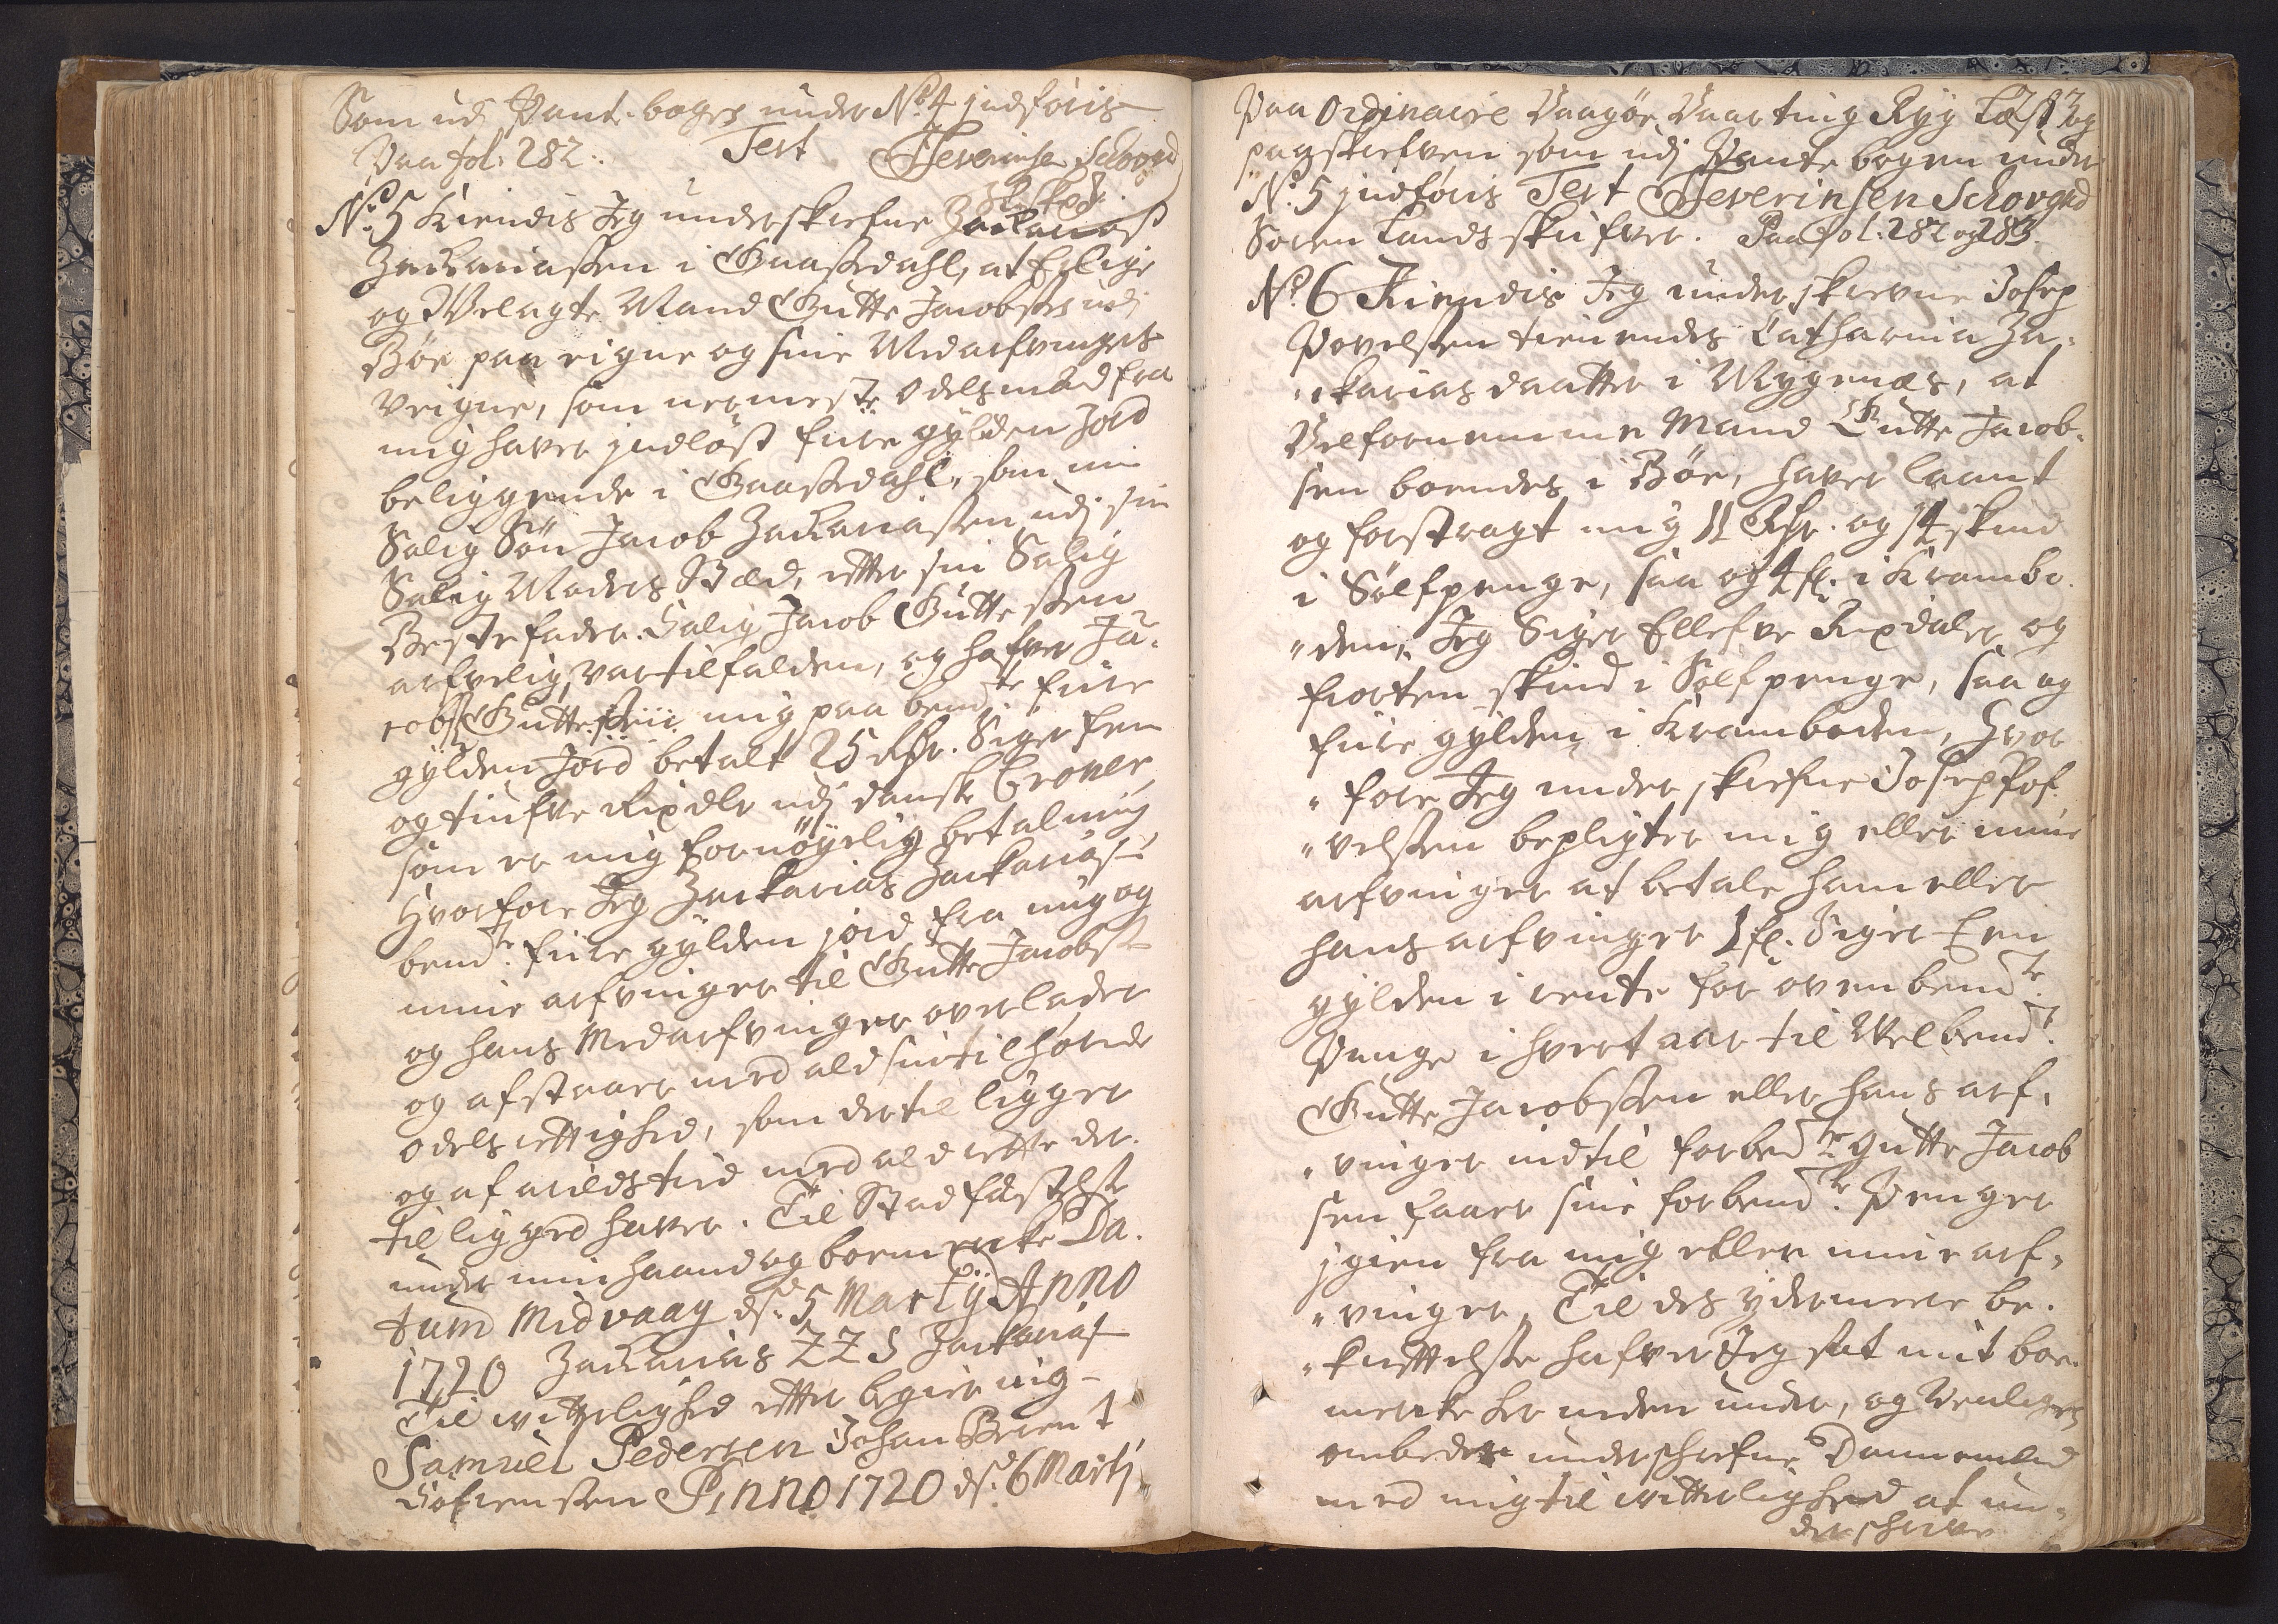 Som udj Pant-bogen under No: 4 indføris
Paa fol: 282. Test Severinsen Schougrd
No: 5 Kiendis Jeg underskrefne Zackarias
Zackariassen i Gaassedahl, at Erlige
og Velagte Mand Gutte Jacobsen udj
Bøe paa eigne og sine Medarfvingers
Veigne, som nermeste odelsmænd fra
mig haver indløst fiire gylden Jord
beliggende i Gaassedahl, som min
Salig Søn Jacob Zackariassen udj sin
Salig Moders Stæd, efter sin Salig
Bestefader Salig Jacob Guttessen
arfvelig var tilfalden, og hafver Ja-
cobs Guttessen mig paa bemte fiire
gylden Jord betalt 25 Rdr. Siger fem
og tiufve Rixdlr udj danske Croner,
som er mig fornøyelig betaling
Hvorfore Jeg Zackarias Zackarias:
bemte fiire gylden jord fra mig og
mine arfvinger til Gutte Jacobs:
og hans Medarfvinger overlader
og afstaaer med ald sin tilhørende
odels rettighed, som dertil ligger
og af arilds tiid med ald rette der-
til ligged haver. Til Stadfæstelse
under min haand og boemerke Da-
tum Midvaag ds: 5 Martij Anno
1720 Zackarias ZZS Zackarias:
Til vitterlighed efter begiering
Samuel Pedersen Johan Brient
Sofrenssen ANNO 1720 ds: 6 Martj
283
Paa Ordinaire Vaagøe Vaarting Ryg Læst og
paaskrefven som udj Pantebogen under
No: 5 indføris Test Severinsen Schougrd
Soren Landsskrifver. Paa fol: 282 og 283.
No: 6 Kiendis Jeg underskrevne Josep
Povelssen tienendes Catharina Za-
"ckarias daatter i Mygenæs, at
Velfornemme Mand Gutte Jacob-
sen boendes i Bøe, haver laant
og forstragt mig 11 Rdr. og 14 skind
i Sølfpenge, saa og 4 fl. i Krambo-
"den, Jeg Siger Ellefve Rixdaler og
fiorten skind i Sølfpenge, saa og
fiire gylden i Kramboden, hvor
"fore Jeg underskrefne Josep Pof-
"velssen bepligter mig eller mine
arfvinger at betale ham eller
hans arfvinger 1 fl. Siger Een
gylden i rente for ovenbemte
Penge i hvert aar til Velbemte
Gutte Jacobssen eller hans arf-
"vinger indtil forbemte Gutte Jacob
sen faaer sine forbemte Penger
igien fra mig eller mine arf-
"vinger. Til des ydermeere be-
"kreftelse hafver Jeg sat mit boe-
merke her neden under, og Venligen
ombeder underskrefne Dannemænd
med mig til vitterlighed at un-
derskrive